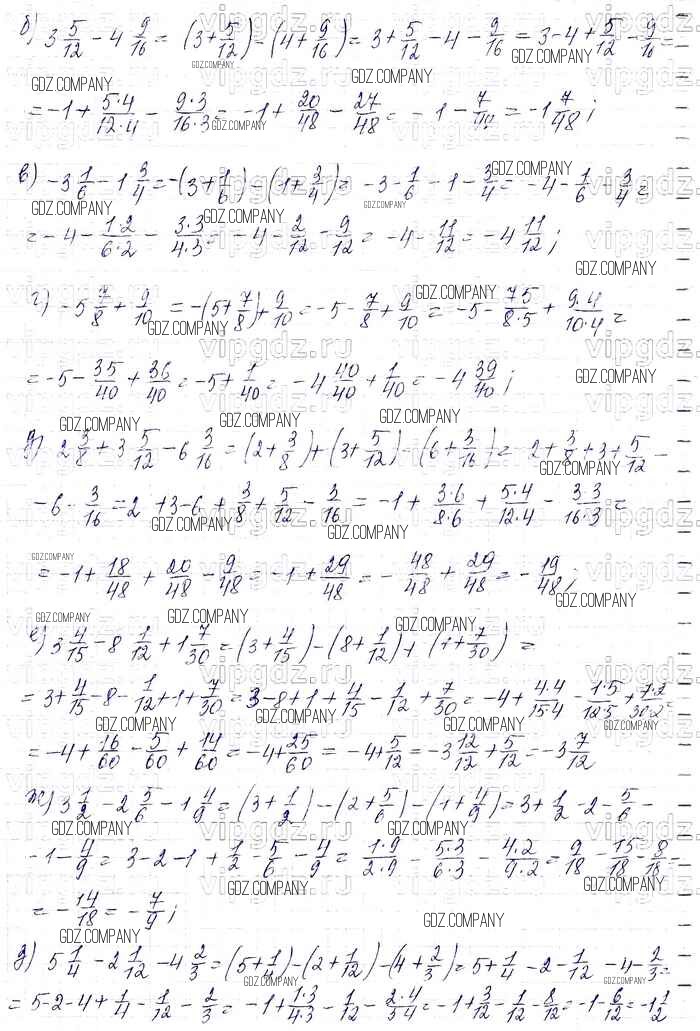 б) 3 5/12 - 4 9/16 = (3 + 5/12) - (4 + 9/16) = 3 + 5/12 - 4 - 9/16 = 3 - 4 + 5/12 - 9/16 =
= -1 + 5·4/12·4 - 9·3/16·3 = -1 + 20/48 - 27/48 = -1 - 7/48 = -1 7/48;
в) -3 1/6 - 1 3/4 = -(3 + 1/6) - (1 + 3/4) = -3 - 1/6 - 1 - 3/4 = -4 - 1/6 - 3/4 =
= -4 - 1·2/6·2 - 3·3/4·3 = -4 - 2/12 - 9/12 = -4 - 11/12 = -4 11/12;
г) -5 7/8 + 9/10 = -(5 + 7/8) + 9/10 = -5 - 7/8 + 9/10 = -5 - 7·5/8·5 + 9·4/10·4 =
= -5 - 35/40 + 36/40 = -5 + 1/40 = -4 40/40 + 1/40 = -4 39/40;
д) 2 3/8 + 3 5/12 - 6 3/16 = (2 + 3/8) + (3 + 5/12) - (6 + 3/16) = 2 + 3/8 + 3 + 5/12 -
- 6 - 3/16 = 2 + 3 - 6 + 3/8 + 5/12 - 3/16 = -1 + 3·6/8·6 + 5·4/12·4 - 3·3/16·3 =
= -1 + 18/48 + 20/48 - 9/48 = -1 + 29/48 = -48/48 + 29/48 = -19/48;
е) 3 4/15 - 8 1/12 + 1 7/30 = (3 + 4/15) - (8 + 1/12) + (1 + 7/30) =
= 3 + 4/15 - 8 - 1/12 + 1 + 7/30 = 3 - 8 + 1 + 4/15 - 1/12 + 7/30 = -4 + 4·4/15·4 - 1·5/12·5 + 7·2/30·2 =
= -4 + 16/60 - 5/60 + 14/60 = -4 + 25/60 = -4 + 5/12 = -3 12/12 + 5/12 = -3 7/12
ж) 3 1/2 - 2 5/6 - 1 4/9 = (3 + 1/2) - (2 + 5/6) - (1 + 4/9) = 3 + 1/2 - 2 - 5/6 -
- 1 - 4/9 = 3 - 2 - 1 + 1/2 - 5/6 - 4/9 = 1·9/2·9 - 5·3/6·3 - 4·2/9·2 = 9/18 - 15/18 - 8/18 =
= -14/18 = -7/9;
з) 5 1/4 - 2 1/12 - 4 2/3 = (5 + 1/4) - (2 + 1/12) - (4 + 2/3) = 5 + 1/4 - 2 - 1/12 - 4 - 2/3 =
= 5 - 2 - 4 + 1/4 - 1/12 - 2/3 = -1 + 1·3/4·3 - 1/12 - 2·4/3·4 = -1 + 3/12 - 1/12 - 8/12 = -1 - 6/12 = -1 1/2